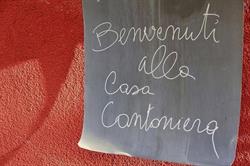 Benvenuti
alla
Casa
Cantoniera